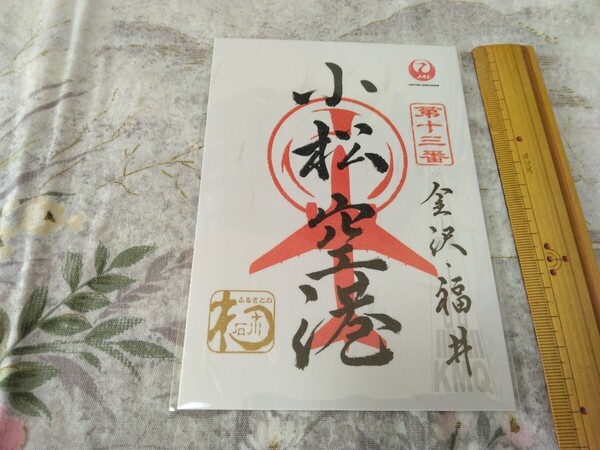 JAL
JAPAN AIRLINES
第十三番
小松空港
金沢・福井
KMQ
ふるさとの
石川